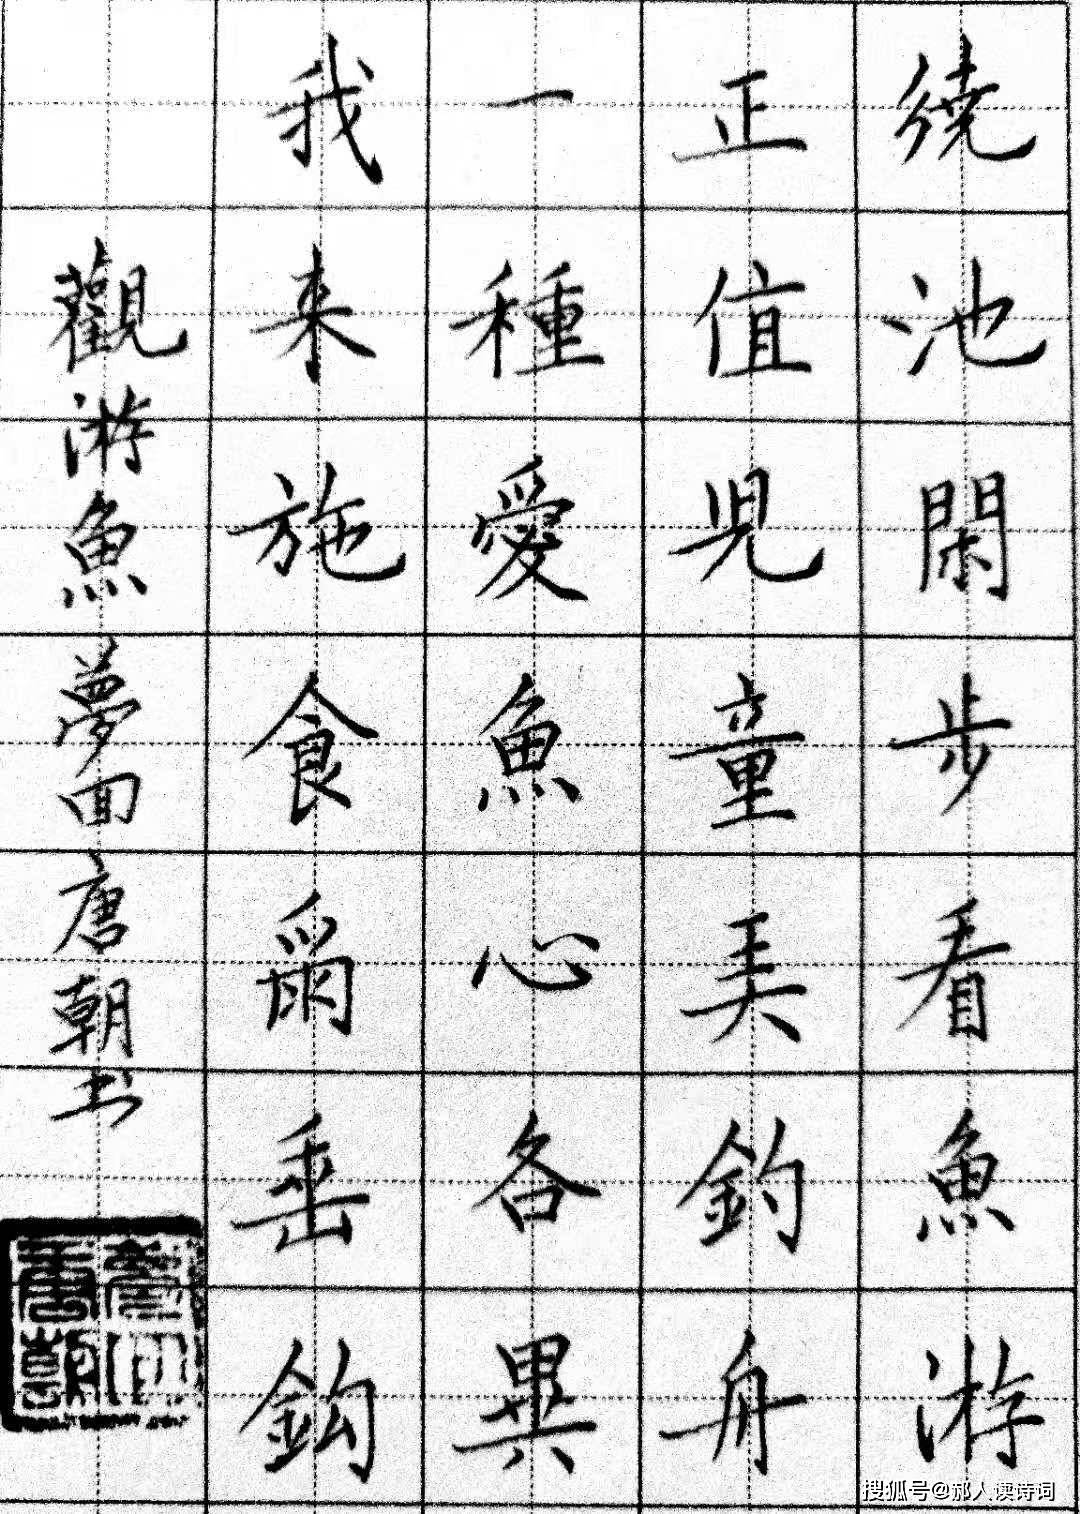 繞池閑步看魚游
正值児童弄釣舟
一種愛魚心各異
我来施食爾垂鈎
觀游魚 夢囬唐朝书
搜狐号@郝人读诗词